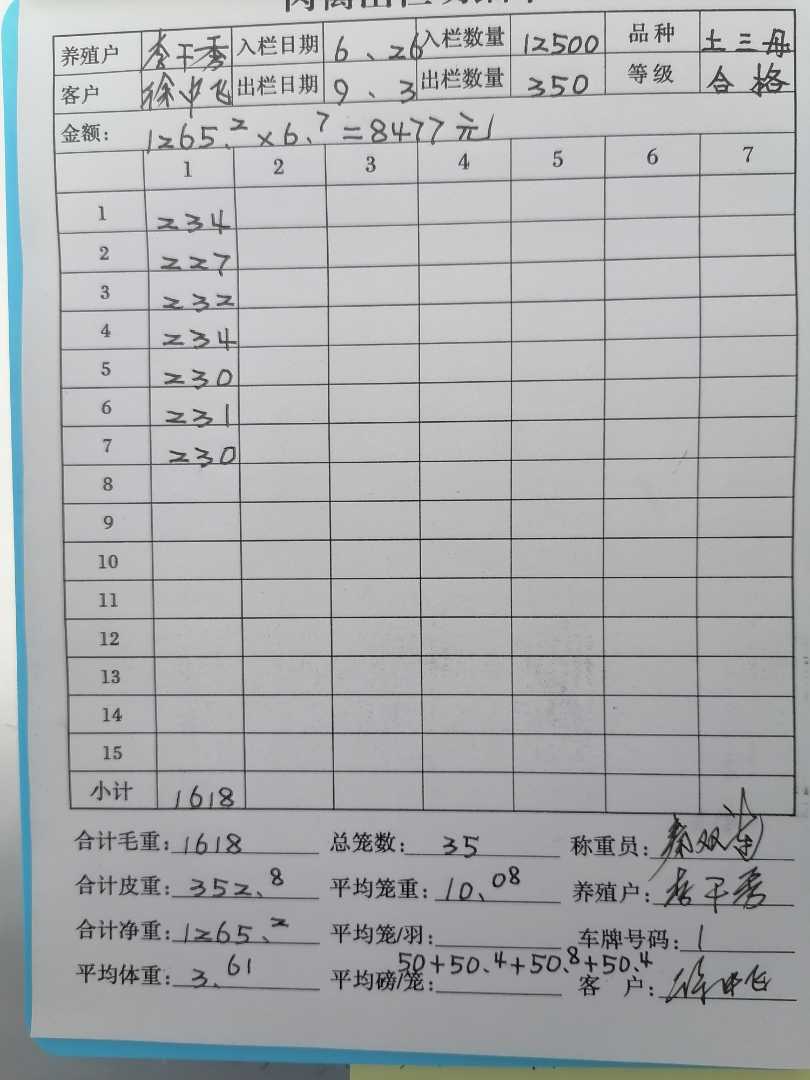 养殖户 李干秀 入栏日期 6、26 入栏数量 12500 品种 土三母
客户 徐中飞 出栏日期 9、3 出栏数量 350 等级 合格
金额: 1265.2×6.7=8477元
1 2 3 4 5 6 7
1 234
2 227
3 232
4 234
5 230
6 231
7 230
8
9
10
11
12
13
14
15
小计 1618
合计毛重: 1618 总笼数: 35 称重员:
合计皮重: 352.8 平均笼重: 10.08 养殖户: 李干秀
合计净重: 1265.2 平均笼/羽: 车牌号码: 1
50+50.4+50.8+50.4
平均体重: 3.61 平均磅/笼: 客户: 徐中飞